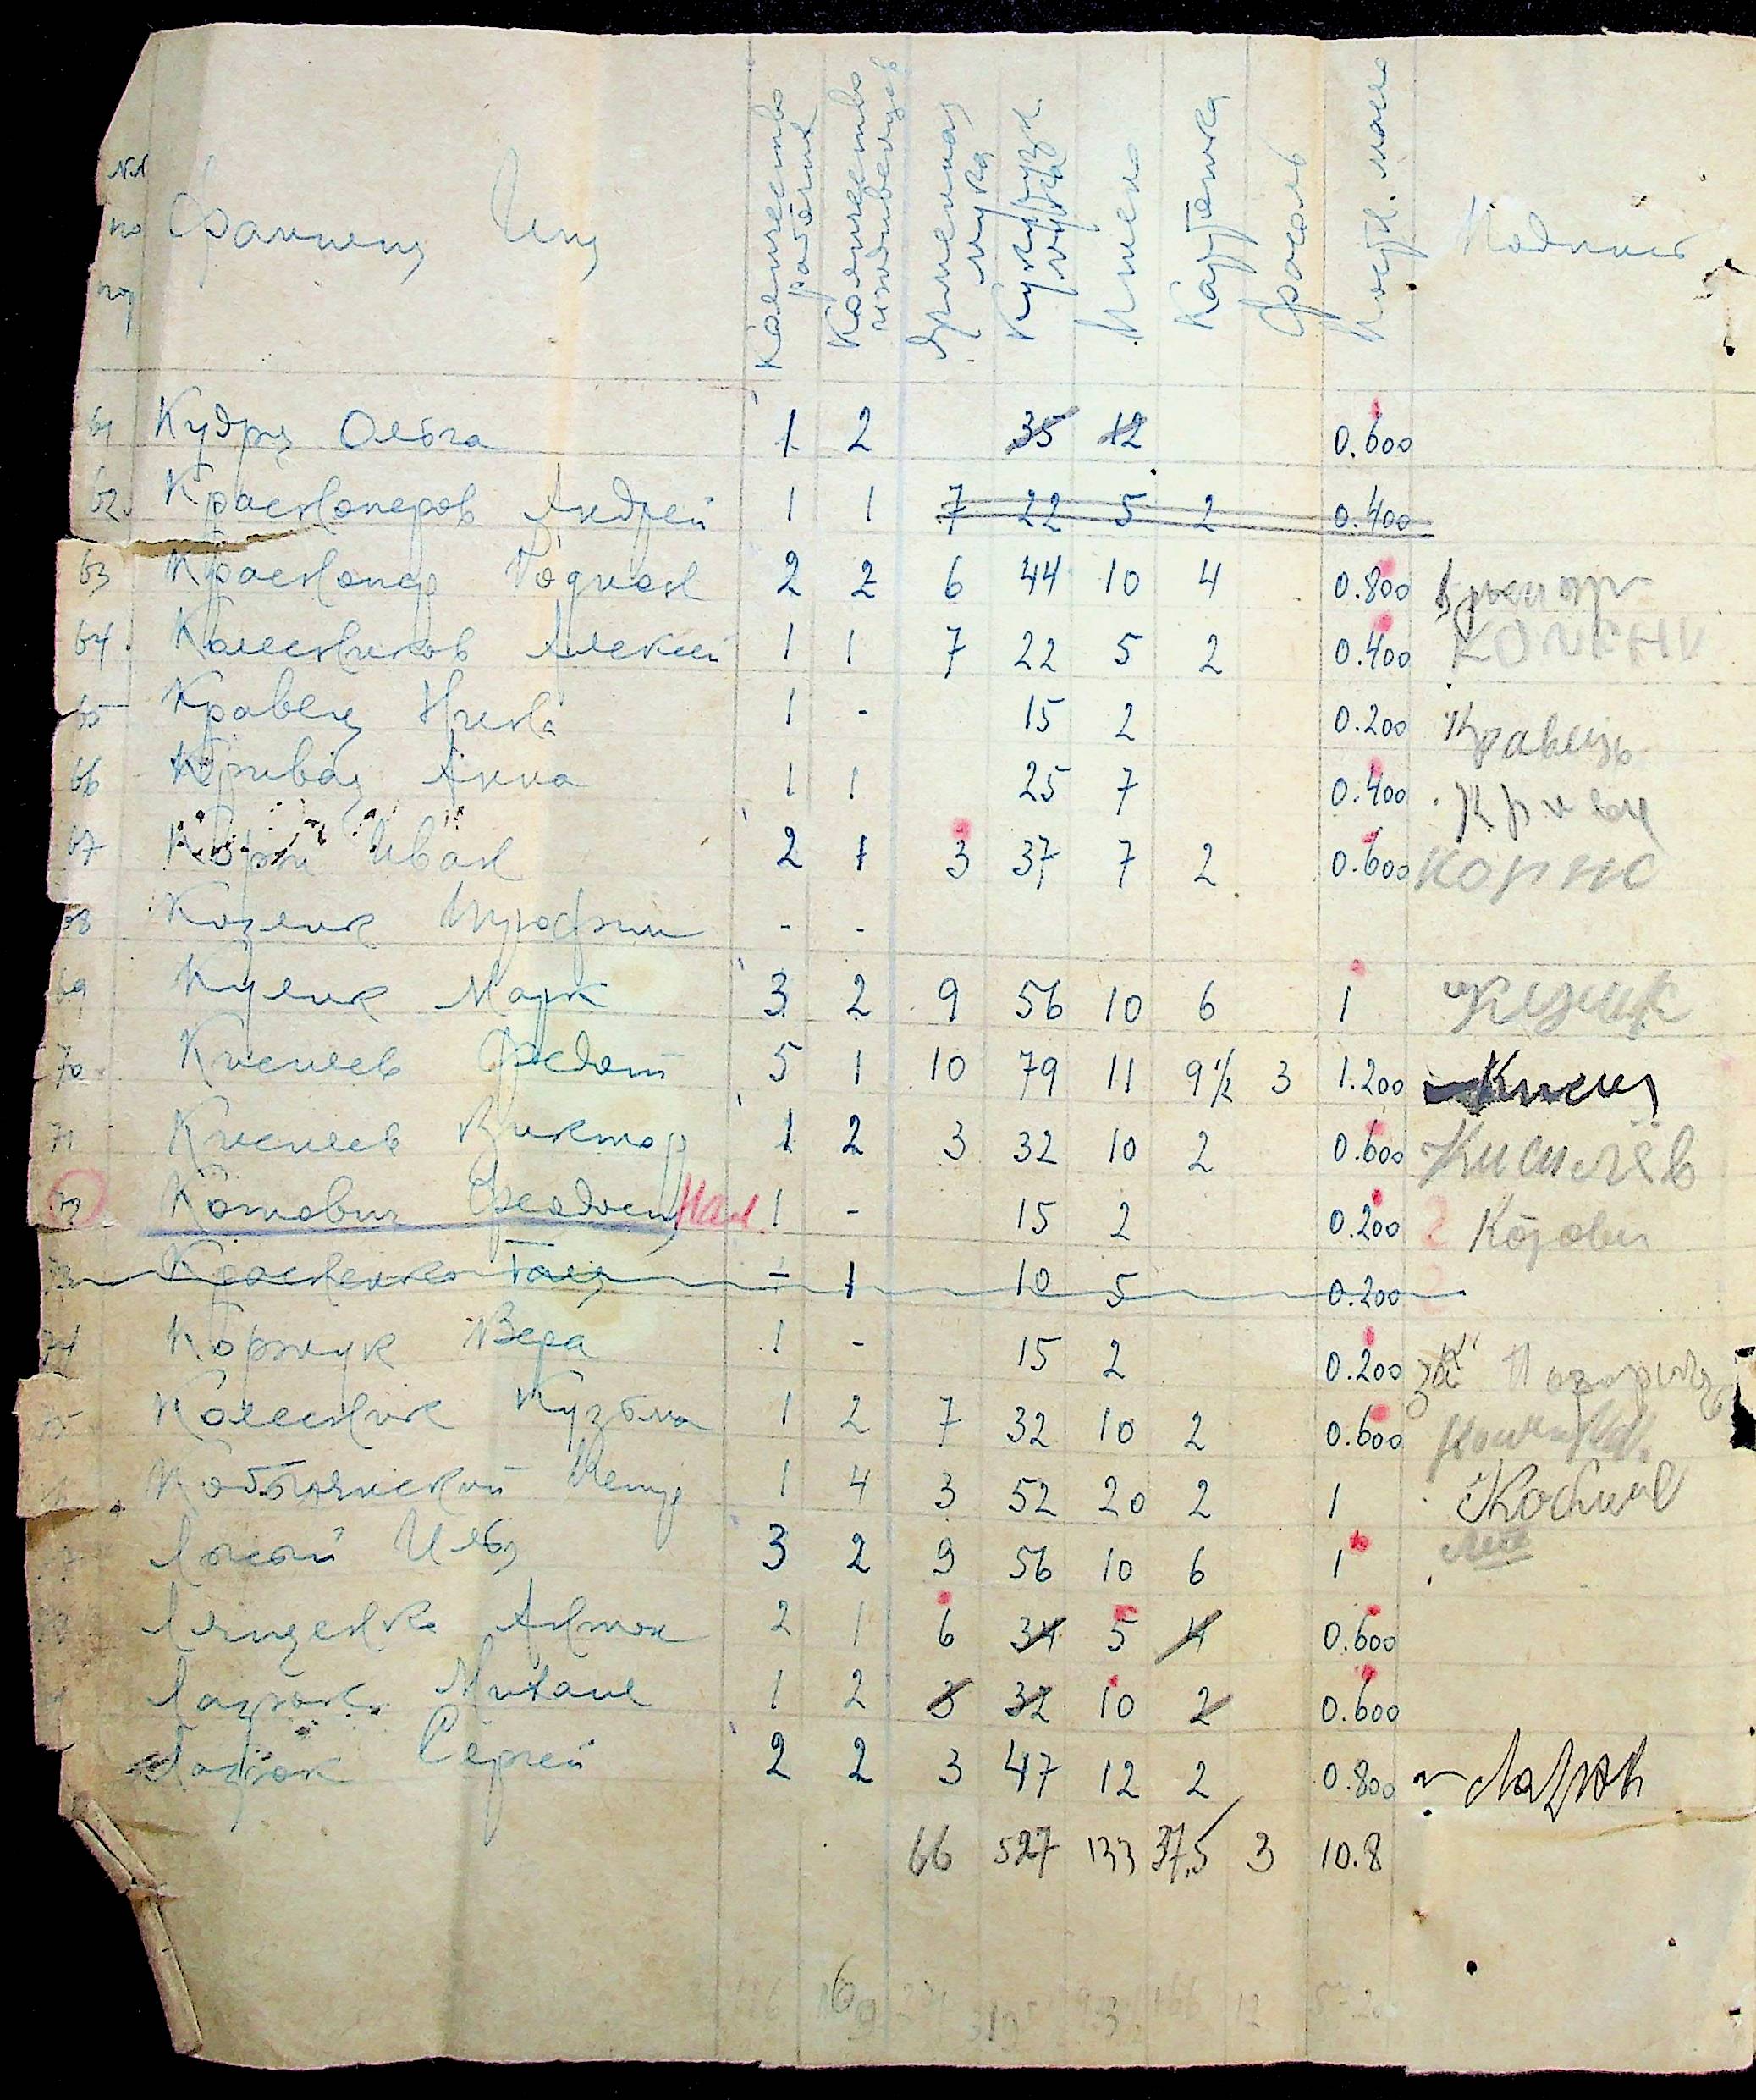 №№ по пор Фамилия Имя Количество работающ Количество иждивенцев Ячменная мука Кукурузн. мука Пшено Картошка Фасоль Постн. масло Подпись
61 Кудря Ольга 1 2 35 12 0.600
62. Красноперов Андрей 1 1 7 22 5 2 0.400
63 Краснопер Родион 2 2 6 44 10 4 0.800
64. Колесников Алексей 1 1 7 22 5 2 0.400
65 Кравец Нина 1 - 15 2 0.200 Кравець
66 Кривая Анна 1 1 25 7 0.400 Кривая
67 Корж Иван 2 1 3 37 7 2 0.600 Корж
68 Козлик - -
69 Кулик Марк 3 2 9 56 10 6 1 Кулик
70. Киселев Федот 5 1 10 79 11 9½ 3 1.200 Кисел
71 Киселев Виктор 1 2 3 32 10 2 0.600 Киселёв
72. Котович Феодосия 1 - 15 2 0.200 2 Котович
73 Красненко Галя - 1 10 5 0.200
74 Коржук Вера 1 - 15 2 0.200 за
75 Колесник Кузьма 1 2 7 32 10 2 0.600
Кобылянский 1 4 3 52 20 2 1
Лысый Илья 3 2 9 56 10 6 1
Лященко Антон 2 1 6 34 5 4 0.600
Лазюк Михаил 1 2 3 32 10 2 0.600
Лазюк Сергей 2 2 3 47 12 2 0.800 Лазюк
66 527 133 37,5 3 10.8